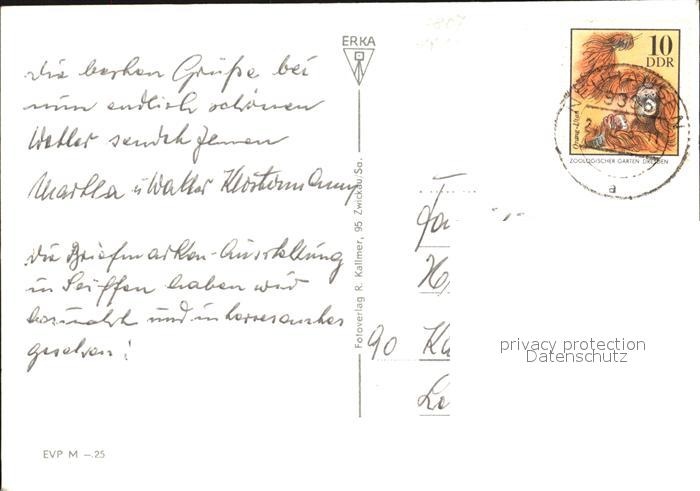 ERKA
10
DDR
Orang-Utan
ZOOLOGISCHER GARTEN DRESDEN
a
die besten Grüße bei
nun endlich schönen
Wetter sendet Ihnen
Martha u Walter
die Briefmarken-Ausstellung
in Seiffen haben wir
besucht und
gesehen!
Fotoverlag R. Kallmer, 95 Zwickau/Sa.
90
privacy protection
Datenschutz
EVP M –.25